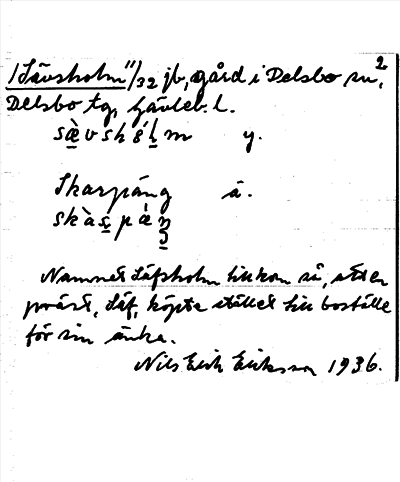 2
/Sävsholm 11/32 jb, gård i Delsbo sn,
Delsbo tg, Gävleb. l.
sæ̀vskólm y.
Skarpäng ä.
skàs̱pǽŋ
Namnet Säfsholm tillkom så, att en
präst, Säf, köpte stället till boställe
för sin änka.
Nils Erik Eriksson 1936.